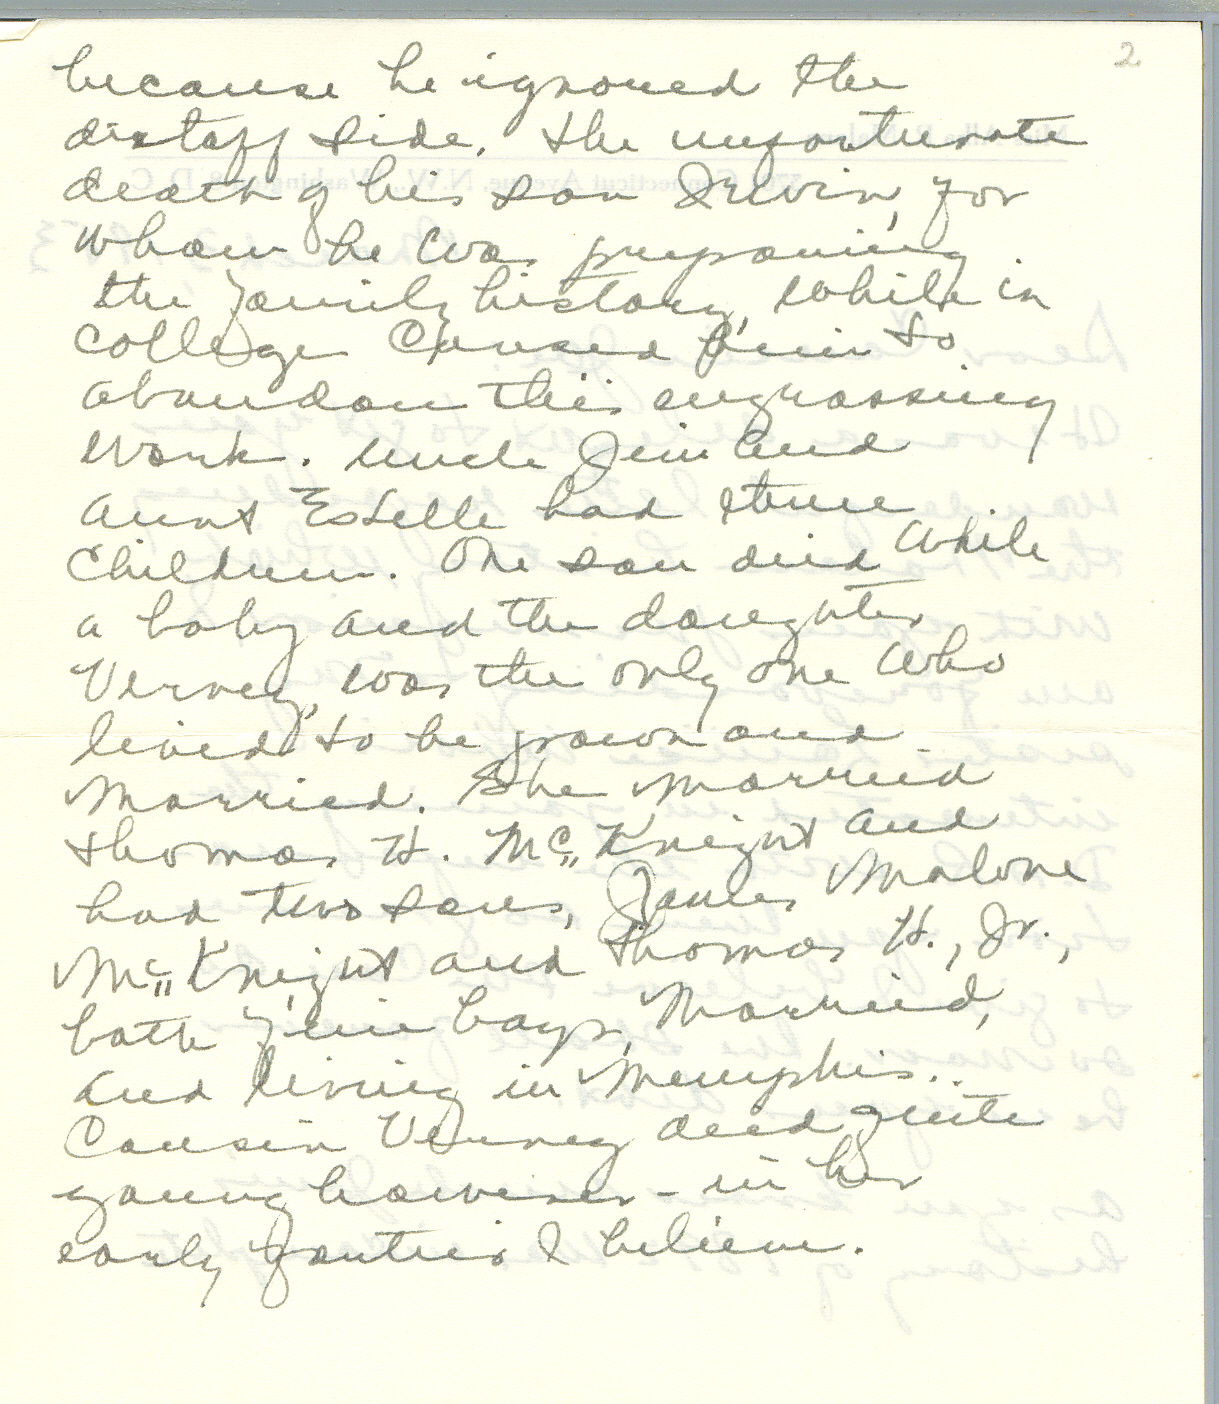 2
because he ignored the
distaff side. The unfortunate
death of his son Irwin, for
whom he was preparing
the family history, while in
college caused him to
abandon this engrossing
work. Uncle Jim and
Aunt Estelle had three
children. One son died while
a baby and the daughter
Verney, was the only one who
lived to be grown and
married. She married
Thomas H. McKnight and
had two sons, James Malone
McKnight and Thomas H., Jr.,
both fine boys, married,
and living in Memphis..
Cousin Verney died quite
young however - in her
early forties I believe.